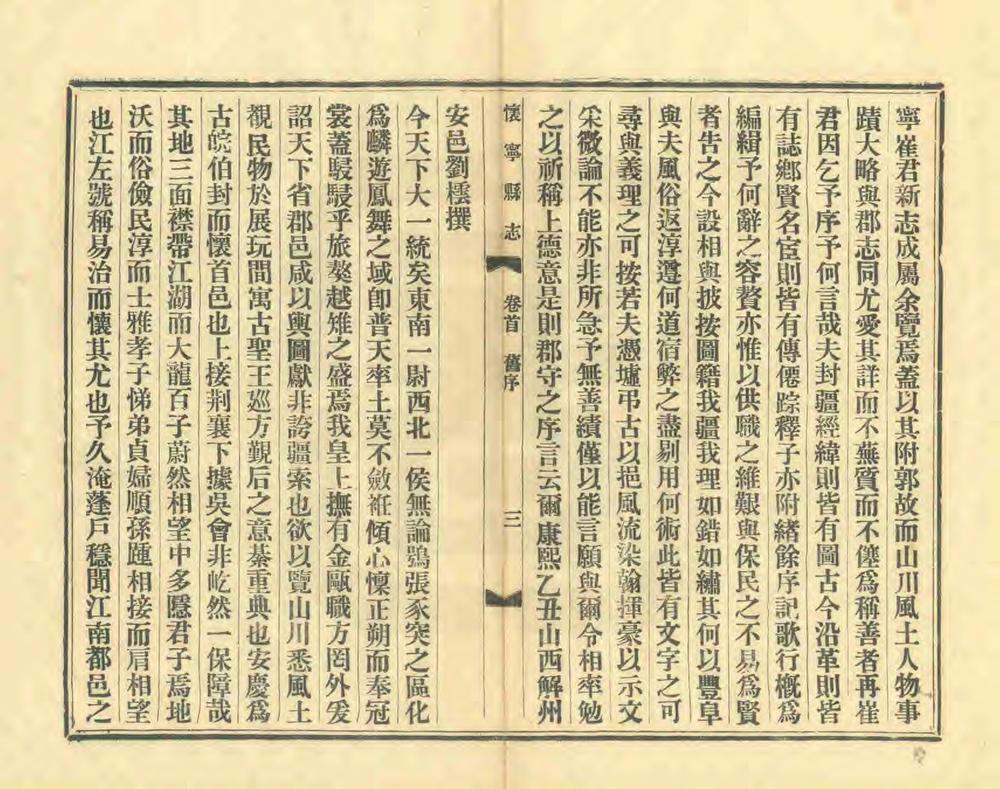 寧崔君新志成屬余覽焉蓋以其附郭故而山川風土人物事
蹟大略與郡志同尤愛其詳而不蕪質而不僿爲稱善者再崔
君因乞予序予何言哉夫封疆經緯則皆有圖古今沿革則皆
有誌鄉賢名宦則皆有傳僊踪釋子亦附緒餘序記歌行槪爲
編緝予何辭之容贅亦惟以供職之維艱與保民之不易爲賢
者告之今設相與披按圖籍我疆我理如錯如繡其何以豐阜
與夫風俗返淳遵何道宿弊之盡剔用何術此皆有文字之可
尋與義理之可按若夫憑墟弔古以挹風流染翰揮豪以示文
采微論不能亦非所急予無善績僅以能言願與爾令相率勉
之以祈稱上德意是則郡守之序言云爾康熙乙丑山西解州
安邑劉橒撰
懷寧縣志 卷首 舊序 三
今天下大一統矣東南一尉西北一侯無論鴞張豕突之區化
爲麟遊鳳舞之域卽普天率土莫不斂袵傾心懍正朔而奉冠
裳蓋駸駸乎旅獒越雉之盛焉我皇上撫有金甌職方罔外爰
詔天下省郡邑咸以輿圖獻非誇疆索也欲以覽山川悉風土
觀民物於展玩間寓古聖王廵方覲后之意綦重典也安慶爲
古皖伯封而懷首邑也上接荆襄下據吳會非屹然一保障哉
其地三面襟帶江湖而大龍百子蔚然相望中多隱君子焉地
沃而俗儉民淳而士雅孝子悌弟貞婦順孫踵相接而肩相望
也江左號稱易治而懷其尤也予久淹蓬戶穩聞江南都邑之